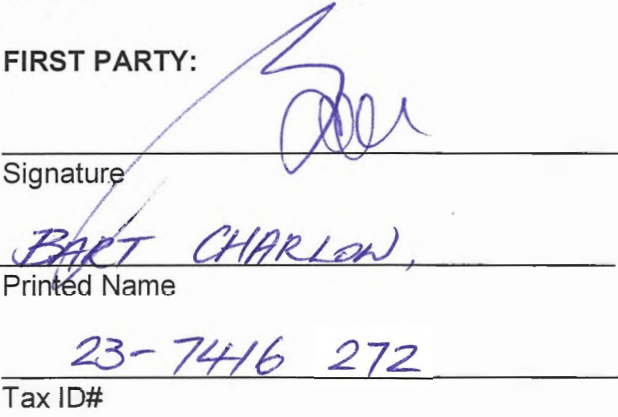 FIRST PARTY:
Signature
BART CHARLOW,
Printed Name
23-7416 272
Tax ID#